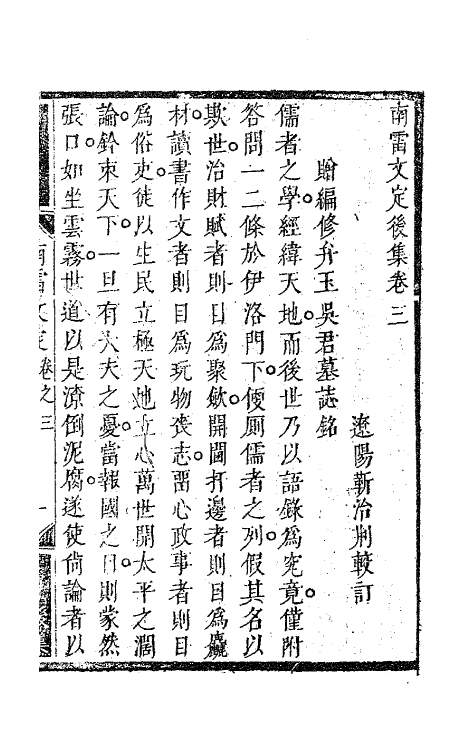 南雷文定後集卷三
遼陽靳治荆較訂
贈編修弁玉吳君墓誌銘
儒者之學。經緯天地。而後世乃以語錄爲究竟。僅附
答問一二條於伊洛門下。便厠儒者之列。假其名以
欺世。治財賦者。則目爲聚歛。開閫扞邊者。則目爲麄
材。讀書作文者。則目爲玩物喪志。畱心政事者。則目
爲俗吏。徒以生民立極。天地立心。萬世開太平之濶
論。鈐束天下。一旦有大夫之憂。當報國之日。則蒙然
張口。如坐雲霧。世道以是潦倒泥腐。遂使尙論者以
南雷文定 卷之三 一